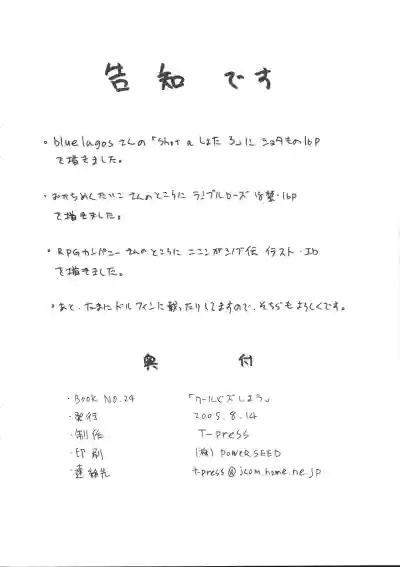 告知です
・bluelagosさんの「Shot a しょたろ」にショタもの16P
で描きました。
・おかちめんたいこさんのところにランブルローズ 18禁・16P
で描きました。
・RPGカンパニーさんのところに イラスト・
を描きました。
・あと、たまにドルフィンに載ったりしてますので、そちらもよろしくです。
奥付
・BOOK NO.24 「クールビズしよう」
・発行 2005.8.14
・制作 T-press
・印刷 (株)POWER SEED
・連絡先 t-press@jcom.home.ne.jp